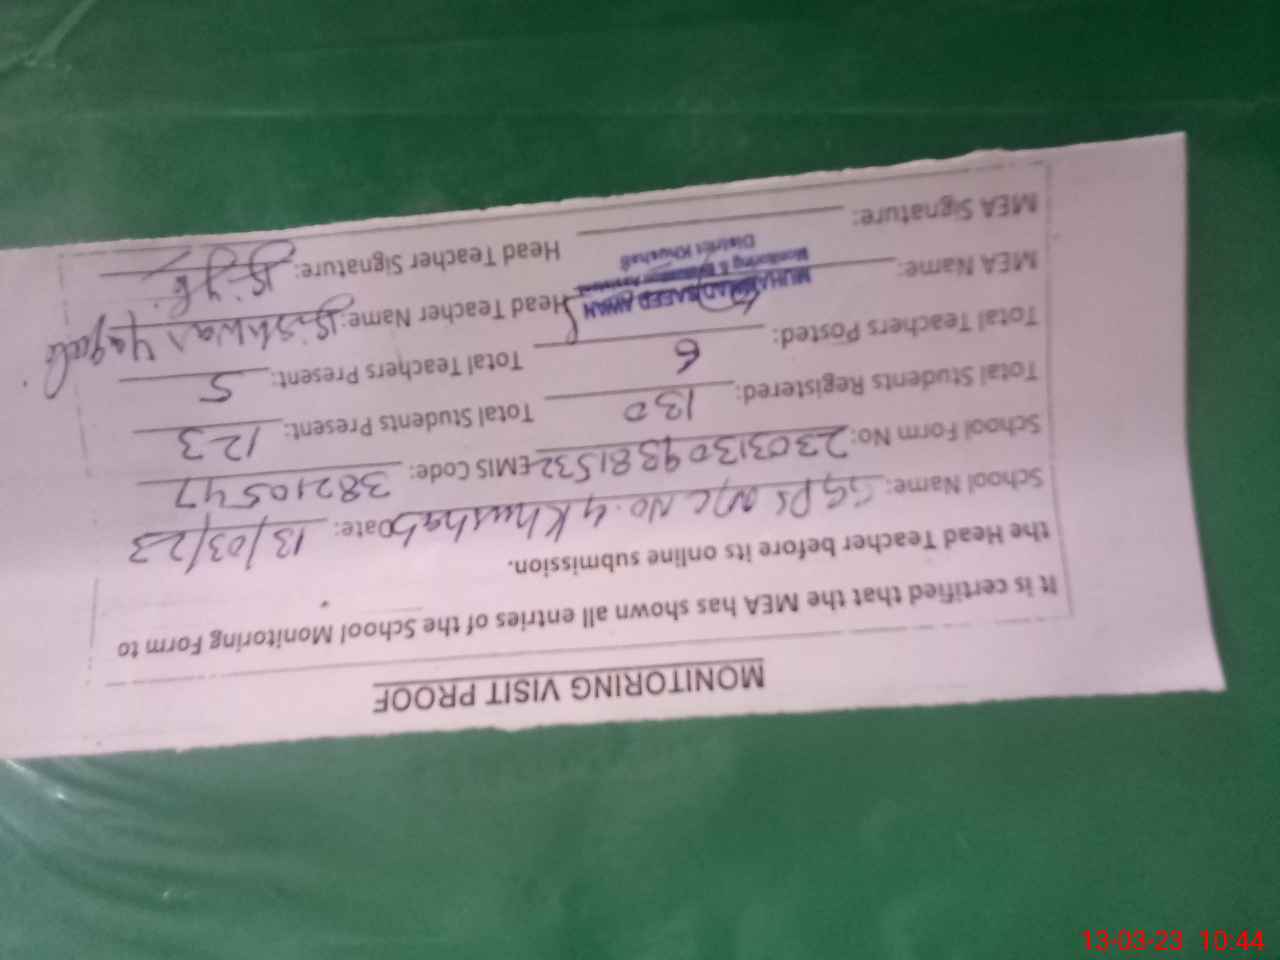 MONITORING VISIT PROOF
It is certified that the MEA has shown all entries of the School Monitoring Form to
the Head Teacher before its online submission.
School Name: GGPS M/C No. 4 Khushab Date: 13/03/23
School Form No: 23031309381532 EMIS Code: 38210547
Total Students Registered: 130 Total Students Present: 123
Total Teachers Posted: 6 Total Teachers Present: 5
MEA Name: MUHAMMAD SAEED AWAN Head Teacher Name:
Monitoring & Evaluation Assistant
District Khushab
MEA Signature: Head Teacher Signature:
13-03-23 10:44